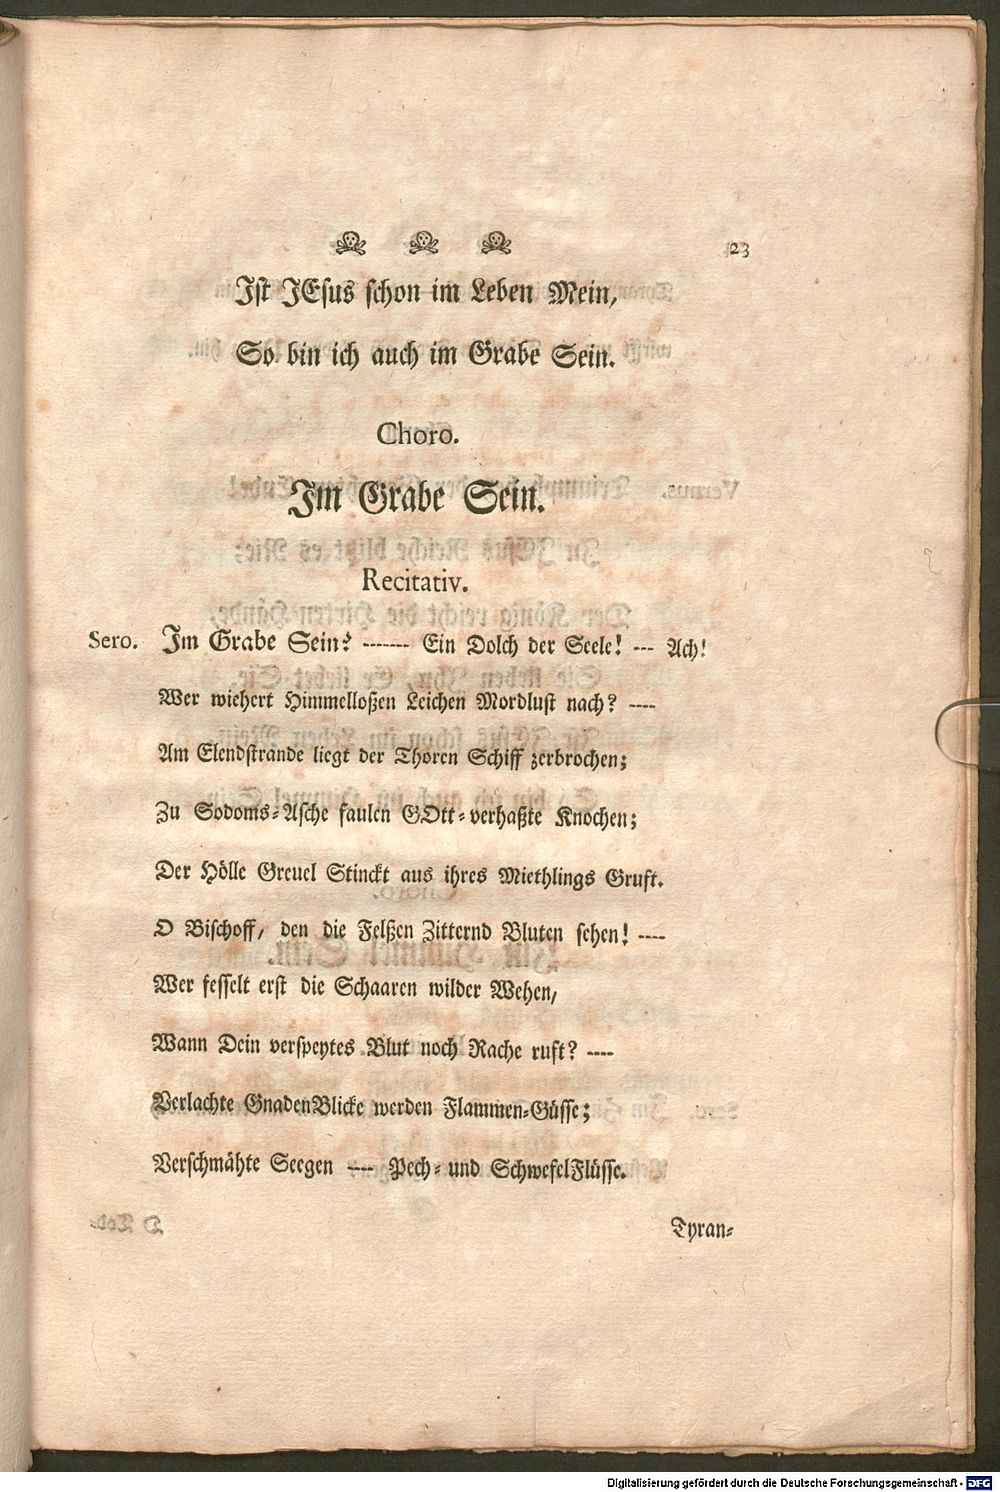 23
Ist JEsus schon im Leben Mein,
So bin ich auch im Grabe Sein.
Choro.
Im Grabe Sein.
Recitativ.
Sero. Im Grabe Sein? ------- Ein Dolch der Seele! --- Ach!
Wer wiehert Himmelloßen Leichen Mordlust nach? ----
Am Elendstrande liegt der Thoren Schiff zerbrochen;
Zu Sodoms-Asche faulen GOtt-verhaßte Knochen;
Der Hölle Greuel Stinckt aus ihres Miethlings Gruft.
O Bischoff, den die Felßen Zitternd Bluten sehen! ----
Wer fesselt erst die Schaaren wilder Wehen,
Wann Dein verspeytes Blut noch Rache ruft? ----
Verlachte GnadenBlicke werden Flammen-Güsse;
Verschmähte Seegen ---- Pech- und SchwefelFlüsse.
Tyran-
Digitalisierung gefördert durch die Deutsche Forschungsgemeinschaft - DFG